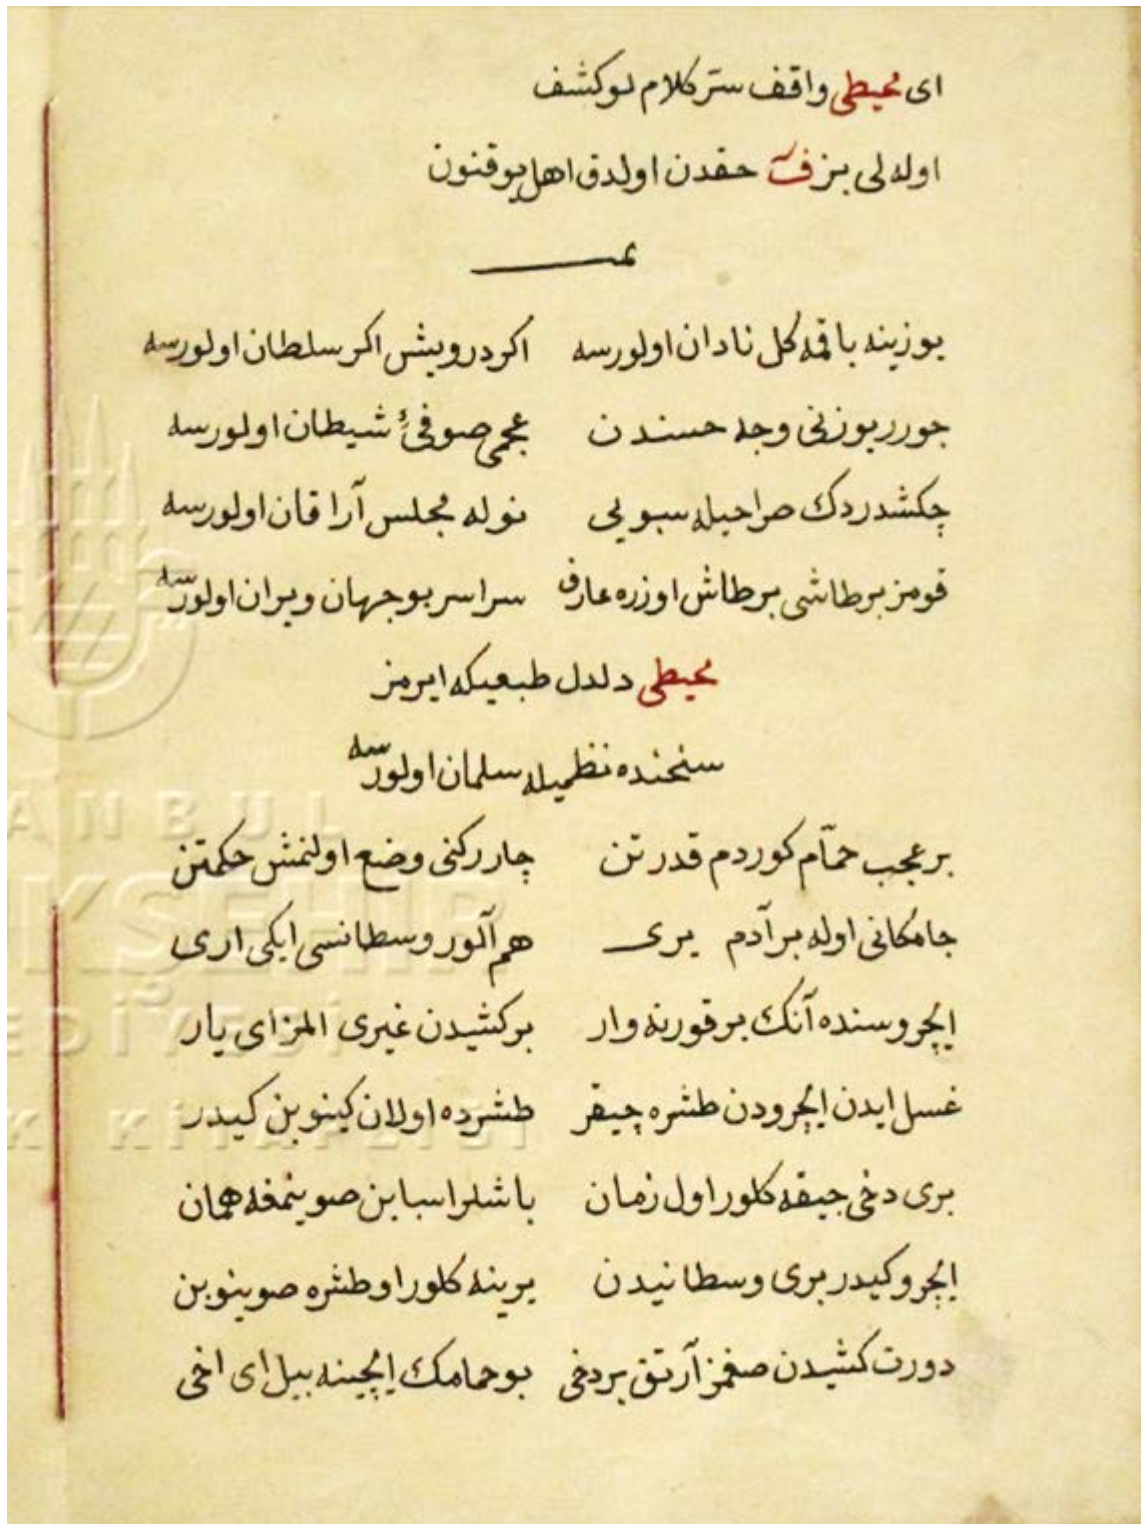 ای محیطی واقف ستر کلام لو کشف
اوله لی بز ف حقدن اولدق اهل یوقنون
یوزینه باقمه کل نادان اولورسه اکر درویش اکر سلطان اولورسه
جورر یوزنی وجه حسندن عجمی صوفیٔ شیطان اولورسه
چکشدردك صراحیله سبویی نوله مجلس آرا قان اولورسه
قومز بر طاشی بر طاش اوزره عارف سراسر بو جهان ویران اولورسه
محیطی دلدل طبعیکه ایرمز
سنخنده نظمیله سلمان اولورسه
بر عجب حمّام کوردم قدرتن چار رکنی وضع اولنمش حکمتن
جامکانی اوله بر آدم یری هم آلور وسطانسی ایکی اری
ایچروسنده آنك بر قورنه وار برکشیدن غیری المز ای یار
غسل ایدن ایچرودن طشره چیقر طشرده اولان کینوبن کیدر
بری دخی جیقه کلور اول زمان باشلر اسبابن صوینمغه همان
ایچرو کیدر بری وسطانیدن یرینه کلور او طشره صوینوبن
دورت کشیدن صغمز آرتق بر دخی بو حمامك ایچینه بیل ای اخی
ISTANBUL
BÜYÜKŞEHİR
BELEDİYESİ
ATATÜRK KİTAPLIĞI